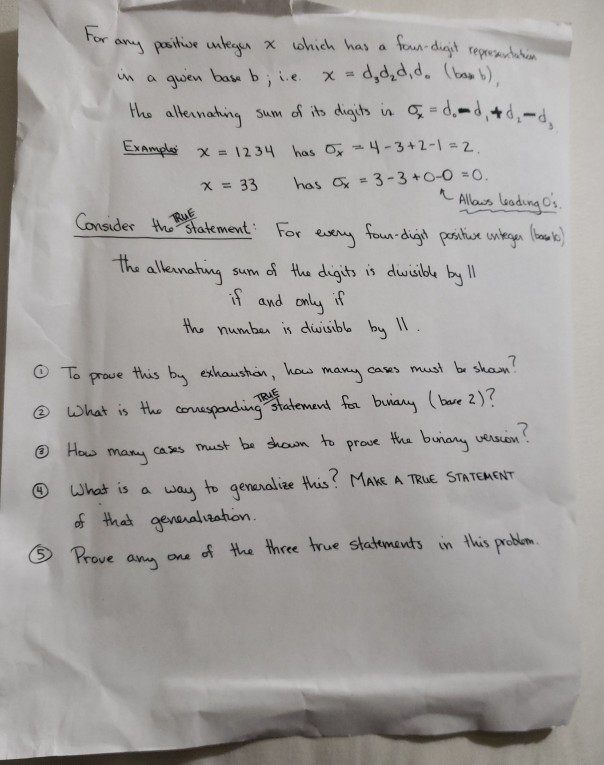 For any positive integer x which has a four-digit representation
in a given base b; i.e. x = d₃d₂d₁d₀ (base b),
the alternating sum of its digits is σₓ = d₀-d₁+d₂-d₃
EXAMPLE: x = 1234 has σₓ = 4-3+2-1 = 2.
x = 33 has σₓ = 3-3+0-0 = 0.
↖ Allows leading 0's.
Consider the TRUE statement: For every four-digit positive integer (base 10)
the alternating sum of the digits is divisible by 11
if and only if
the number is divisible by 11.
① To prove this by exhaustion, how many cases must be shown?
② What is the corresponding TRUE statement for binary (base 2)?
③ How many cases must be shown to prove the binary version?
④ What is a way to generalize this? MAKE A TRUE STATEMENT
of that generalization.
⑤ Prove any one of the three true statements in this problem.